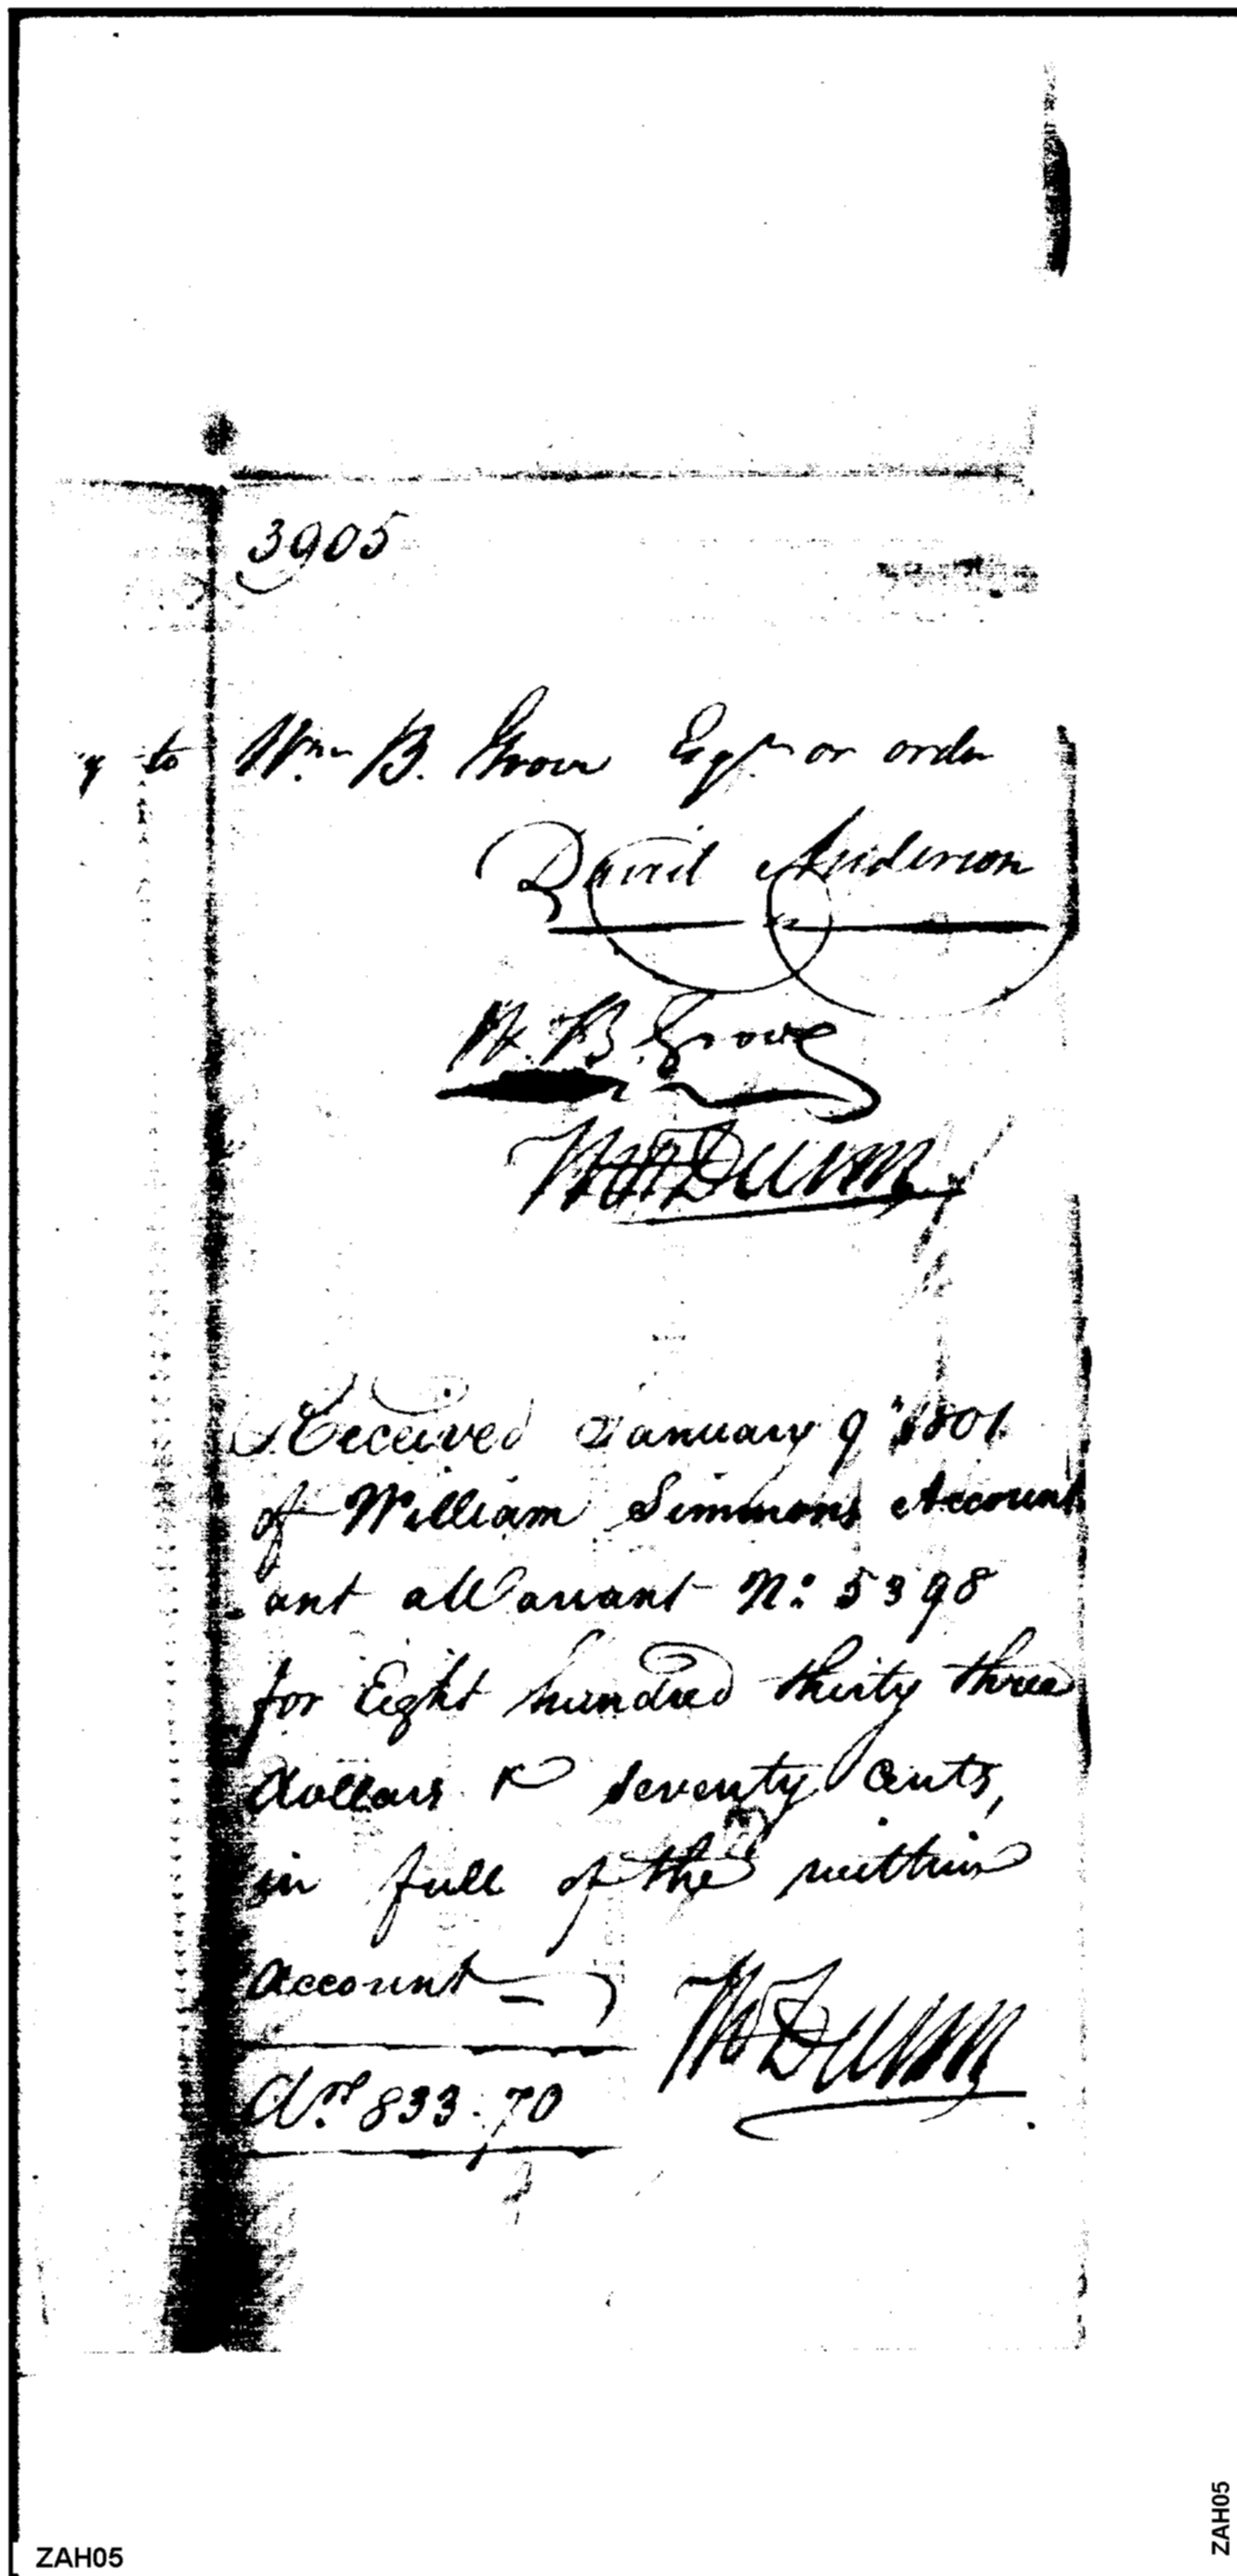 3905
y to Wm. B. Grove Esqr. or order
David Anderson
W. B. Grove
Tho Dunn
Received January 9th 1801
of William Simmons Account
ant a Warrant No: 5398
for Eight hundred thirty three
dollars & seventy Cents,
in full of the within
Account
Tho Dunn
drs 833.70
ZAH05
ZAH05